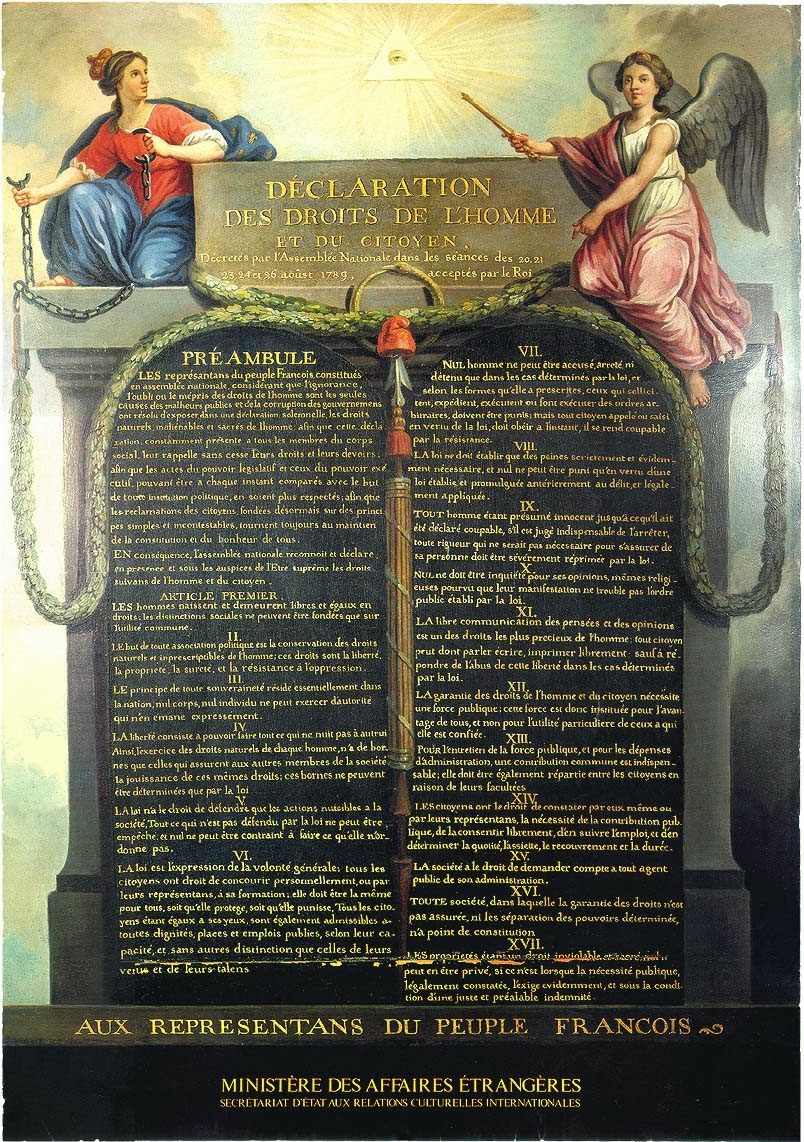 DÉCLARATION
DES DROITS DE L'HOMME
ET DU CITOYEN,
Décretés par l'Assemblée Nationale dans les séances des 20. 21
23. 24 et 26 août 1789, acceptés par le Roi
PRÉAMBULE
LES représantans du peuple Francois, constitués
en assemblée nationale, considérant que l'ignorance,
l'oubli ou le mépris des droits de l'homme sont les seules
causes des malheurs publics et de la corruption des gouvernemens
ont résolu d'exposer dans une déclaration solemnelle, les droits
naturels, inaliénables et sacrés de l'homme: afin que cette décla
ration, constamment présente a tous les membres du corps
social, leur rappelle sans cesse leurs droits et leurs devoirs:
afin que les actes du pouvoir legislatif et ceux du pouvoir exé
cutif, pouvant être a chaque instant comparés avec le but
de toute institution politique, en soient plus respectés; afin que
les reclamations des citoyens, fondées désormais sur des princi
pes simples et incontestables, tournent toujours au maintien
de la constitution et du bonheur de tous.
EN conséquence, l'assemblée nationale reconnoit et déclare,
en presence et sous les auspices de l'Etre suprême les droits
suivans de l'homme et du citoyen.
ARTICLE PREMIER.
LES hommes naissent et demeurent libres et égaux en
droits; les distinctions sociales ne peuvent être fondées que sur
l'utilité commune.
II.
LE but de toute association politique est la conservation des droits
naturels et inprescriptibles de l'homme; ces droits sont la liberté,
la propriété, la sureté, et la résistance à l'oppression.
III.
LE principe de toute souveraineté réside essentiellement dans
la nation, nul corps, nul individu ne peut exercer d'autorité
qui n'en émane expressement.
IV.
LA liberté consiste a pouvoir faire tout ce qui ne nuit pas à autrui
Ainsi, l'exercice des droits naturels de chaque homme, n'a de bor-
nes que celles qui assurent aux autres membres de la société
la jouissance de ces mêmes droits; ces bornes ne peuvent
être déterminées que par la loi
V.
LA loi n'a le droit de défendre que les actions nuisibles a la
société. Tout ce qui n'est pas défendu par la loi ne peut être
empêché, et nul ne peut être contraint à faire ce qu'elle n'or-
donne pas.
VI.
LA loi est l'expression de la volonté générale; tous les
citoyens ont droit de concourir personnellement, ou par
leurs représentans, à sa formation; elle doit être la même
pour tous, soit qu'elle protege, soit qu'elle punisse. Tous les cito
yens étant égaux a ses yeux, sont également admissibles a
toutes dignités, places et emplois publics, selon leur ca-
pacité, et sans autres distinction que celles de leurs
vertus et de leurs talens
VII.
NUL homme ne peut être accusé, arreté, ni
détenu que dans les cas déterminés par la loi, et
selon les formes qu'elle à prescrites, ceux qui sollici-
tent, expédient, exécutent ou font exécuter des ordres ar-
bitraires, doivent être punis; mais tout citoyen appelé ou saisi
en vertu de la loi, doit obéir a l'instant, il se rend coupable
par la résistance.
VIII.
LA loi ne doit établir que des peines strictement et évidem-
ment nécessaire, et nul ne peut être puni qu'en vertu d'une
loi établie et promulguée antérierement au délit, et légale-
ment appliquée.
IX.
TOUT homme étant présumé innocent jusqu'à ce qu'il ait
été déclaré coupable, s'il est jugé indispensable de l'arrêter,
toute rigueur qui ne serait pas nécessaire pour s'assurer de
sa personne doit être sévèrement réprimée par la loi.
X.
NUL ne doit être inquiété pour ses opinions, mêmes religi-
euses pourvû que leur manifestation ne trouble pas l'ordre
public établi par la loi.
XI.
LA libre communication des pensées et des opinions
est un des droits les plus precieux de l'homme: tout citoyen
peut dont parler écrire, imprimer librement: sauf a ré-
pondre de l'abus de cette liberté dans les cas déterminés
par la loi.
XII.
LA garantie des droits de l'homme et du citoyen nécessite
une force publique; cette force est donc instituée pour l'avan-
tage de tous, et non pour l'utilité particuliere de ceux a qui
elle est confiée.
XIII.
Pour l'entretien de la force publique, et pour les dépenses
d'administration, une contribution commune est indispen-
sable; elle doit être également répartie entre les citoyens en
raison de leurs facultées
XIV.
LES citoyens ont le droit de constater par eux même ou
par leurs représentans, la nécessité de la contribution pub-
lique, de la consentir librement, d'en suivre l'emploi, et d'en
déterminer la quotité, l'assiette, le recouvrement et la durée.
XV.
LA société a le droit de demander compte a tout agent
public de son administration.
XVI.
TOUTE société, dans laquelle la garantie des droits n'est
pas assurée, ni les séparation des pouvoirs déterminée,
n'a point de constitution
XVII.
LES propriétés étant un droit inviolable et sacré, nul ne
peut en être privé, si ce n'est lorsque la nécessité publique,
légalement constatée, l'exige evidemment, et sous la condi-
tion d'une juste et préalable indemnité.
AUX REPRESENTANS DU PEUPLE FRANCOIS
MINISTÈRE DES AFFAIRES ÉTRANGÈRES
SECRÉTARIAT D'ÉTAT AUX RELATIONS CULTURELLES INTERNATIONALES